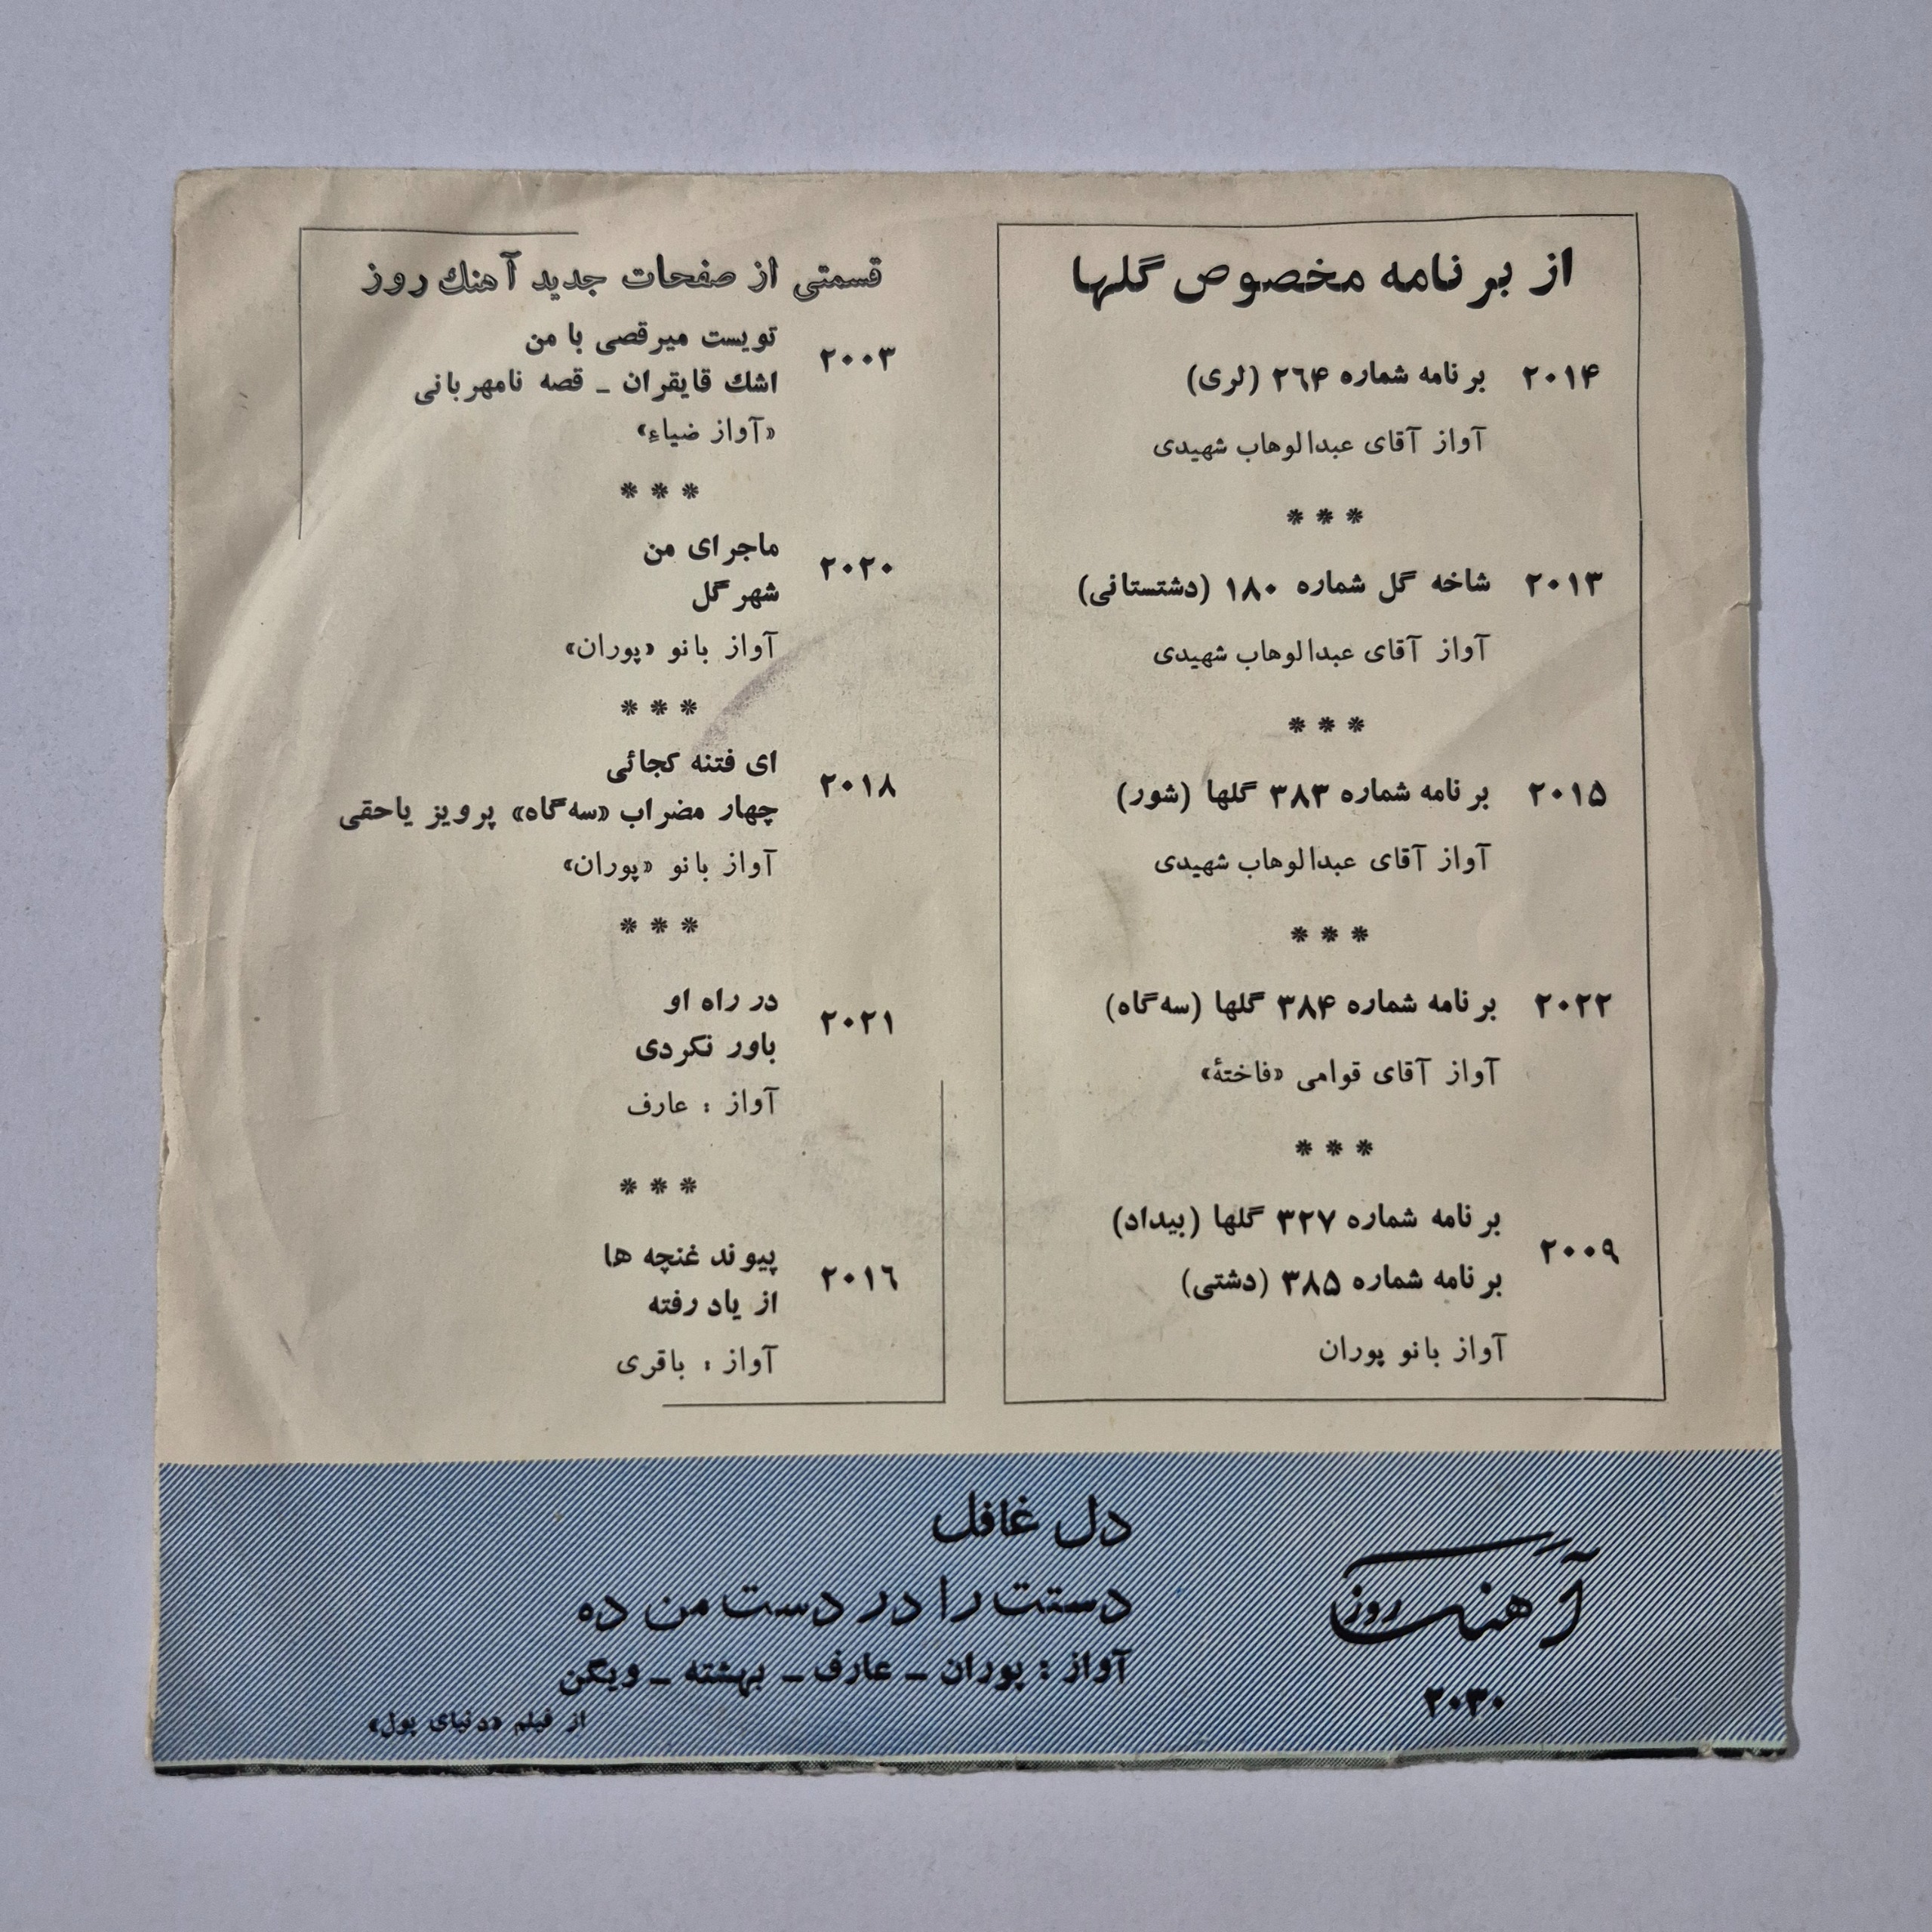 از برنامه مخصوص گلها
۲۰۱۴ برنامه شماره ۲۶۴ (لری)
آواز آقای عبدالوهاب شهیدی
* * *
۲۰۱۳ شاخه گل شماره ۱۸۰ (دشتستانی)
آواز آقای عبدالوهاب شهیدی
* * *
۲۰۱۵ برنامه شماره ۳۸۳ گلها (شور)
آواز آقای عبدالوهاب شهیدی
* * *
۲۰۲۲ برنامه شماره ۳۸۴ گلها (سه‌گاه)
آواز آقای قوامی «فاختهٔ»
* * *
۲۰۰۹
برنامه شماره ۳۲۷ گلها (بیداد)
برنامه شماره ۳۸۵ (دشتی)
آواز بانو پوران
قسمتی از صفحات جدید آهنك روز
۲۰۰۳
تویست میرقصی با من
اشك قایقران ـ قصه نامهربانی
«آواز ضیاء»
* * *
۲۰۲۰
ماجرای من
شهر گل
آواز بانو «پوران»
* * *
۲۰۱۸
ای فتنه کجائی
چهار مضراب «سه‌گاه» پرویز یاحقی
آواز بانو «پوران»
* * *
۲۰۲۱
در راه او
باور نکردی
آواز : عارف
* * *
۲۰۱۶
پیوند غنچه ها
از یاد رفته
آواز : باقری
آهنگ روز
۲۰۳۰
دل غافل
دستت را در دست من ده
آواز : پوران ـ عارف ـ بهشته ـ ویگن
از فیلم «دنیای پول»